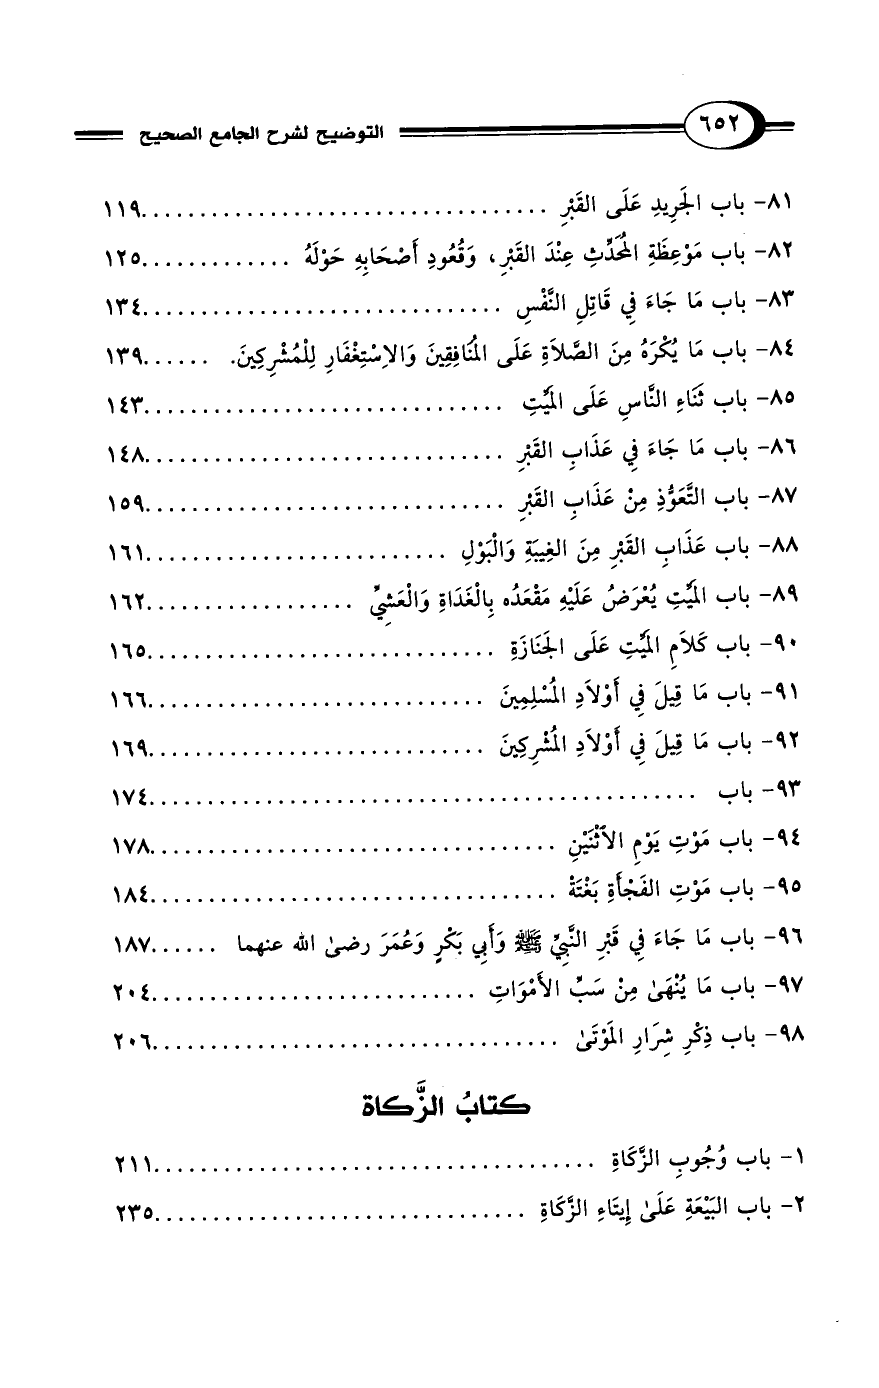 ٦٥٢ التوضيح لشرح الجامع الصحيح
٨١- باب الجَرِيدِ عَلَى القَبْرِ ..................................١١٩
٨٢- باب مَوْعِظَةِ المُحَدِّثِ عِنْدَ القَبْرِ، وَقُعُودِ أَصْحَابِهِ حَوْلَهُ .............١٢٥
٨٣- باب مَا جَاءَ فِي قَاتِلِ النَّفْسِ ................................١٣٤
٨٤- باب مَا يُكْرَهُ مِنَ الصَّلاَةِ عَلَى المُنَافِقِينَ وَالاِسْتِغْفَارِ لِلْمُشْرِكِينَ. ......١٣٩
٨٥- باب ثَنَاءِ النَّاسِ عَلَى المَيِّتِ ................................١٤٣
٨٦- باب مَا جَاءَ فِي عَذَابِ القَبْرِ ................................١٤٨
٨٧- باب التَّعَوُّذِ مِنْ عَذَابِ القَبْرِ ................................١٥٩
٨٨- باب عَذَابِ القَبْرِ مِنَ الغِيبَةِ وَالْبَوْلِ ...........................١٦١
٨٩- باب المَيِّتِ يُعْرَضُ عَلَيْهِ مَقْعَدُه بِالْغَدَاةِ وَالْعَشِيِّ ...................١٦٢
٩٠- باب كَلاَمِ المَيِّتِ عَلَى الجَنَازَةِ ...............................١٦٥
٩١- باب مَا قِيلَ فِي أَوْلاَدِ المُسْلِمِينَ ..............................١٦٦
٩٢- باب مَا قِيلَ فِي أَوْلاَدِ المُشْرِكِينَ ..............................١٦٩
٩٣- باب .................................................١٧٤
٩٤- باب مَوْتِ يَوْمِ الاَثْنَيْنِ ....................................١٧٨
٩٥- باب مَوْتِ الفَجْأَةِ بَغْتَةً ....................................١٨٤
٩٦- باب مَا جَاءَ فِي قَبْرِ النَّبِيِّ ﷺ وَأَبِي بَكْرٍ وَعُمَرَ رضى الله عنهما ......١٨٧
٩٧- باب مَا يُنْهَىٰ مِنْ سَبِّ الأَمْوَاتِ .............................٢٠٤
٩٨- باب ذِكْرِ شِرَارِ المَوْتَىٰ ....................................٢٠٦
كتابُ الزَّكاة
١- باب وُجُوبِ الزَّكَاةِ .......................................٢١١
٢- باب البَيْعَةِ عَلَىٰ إِيتَاءِ الزَّكَاةِ .................................٢٣٥